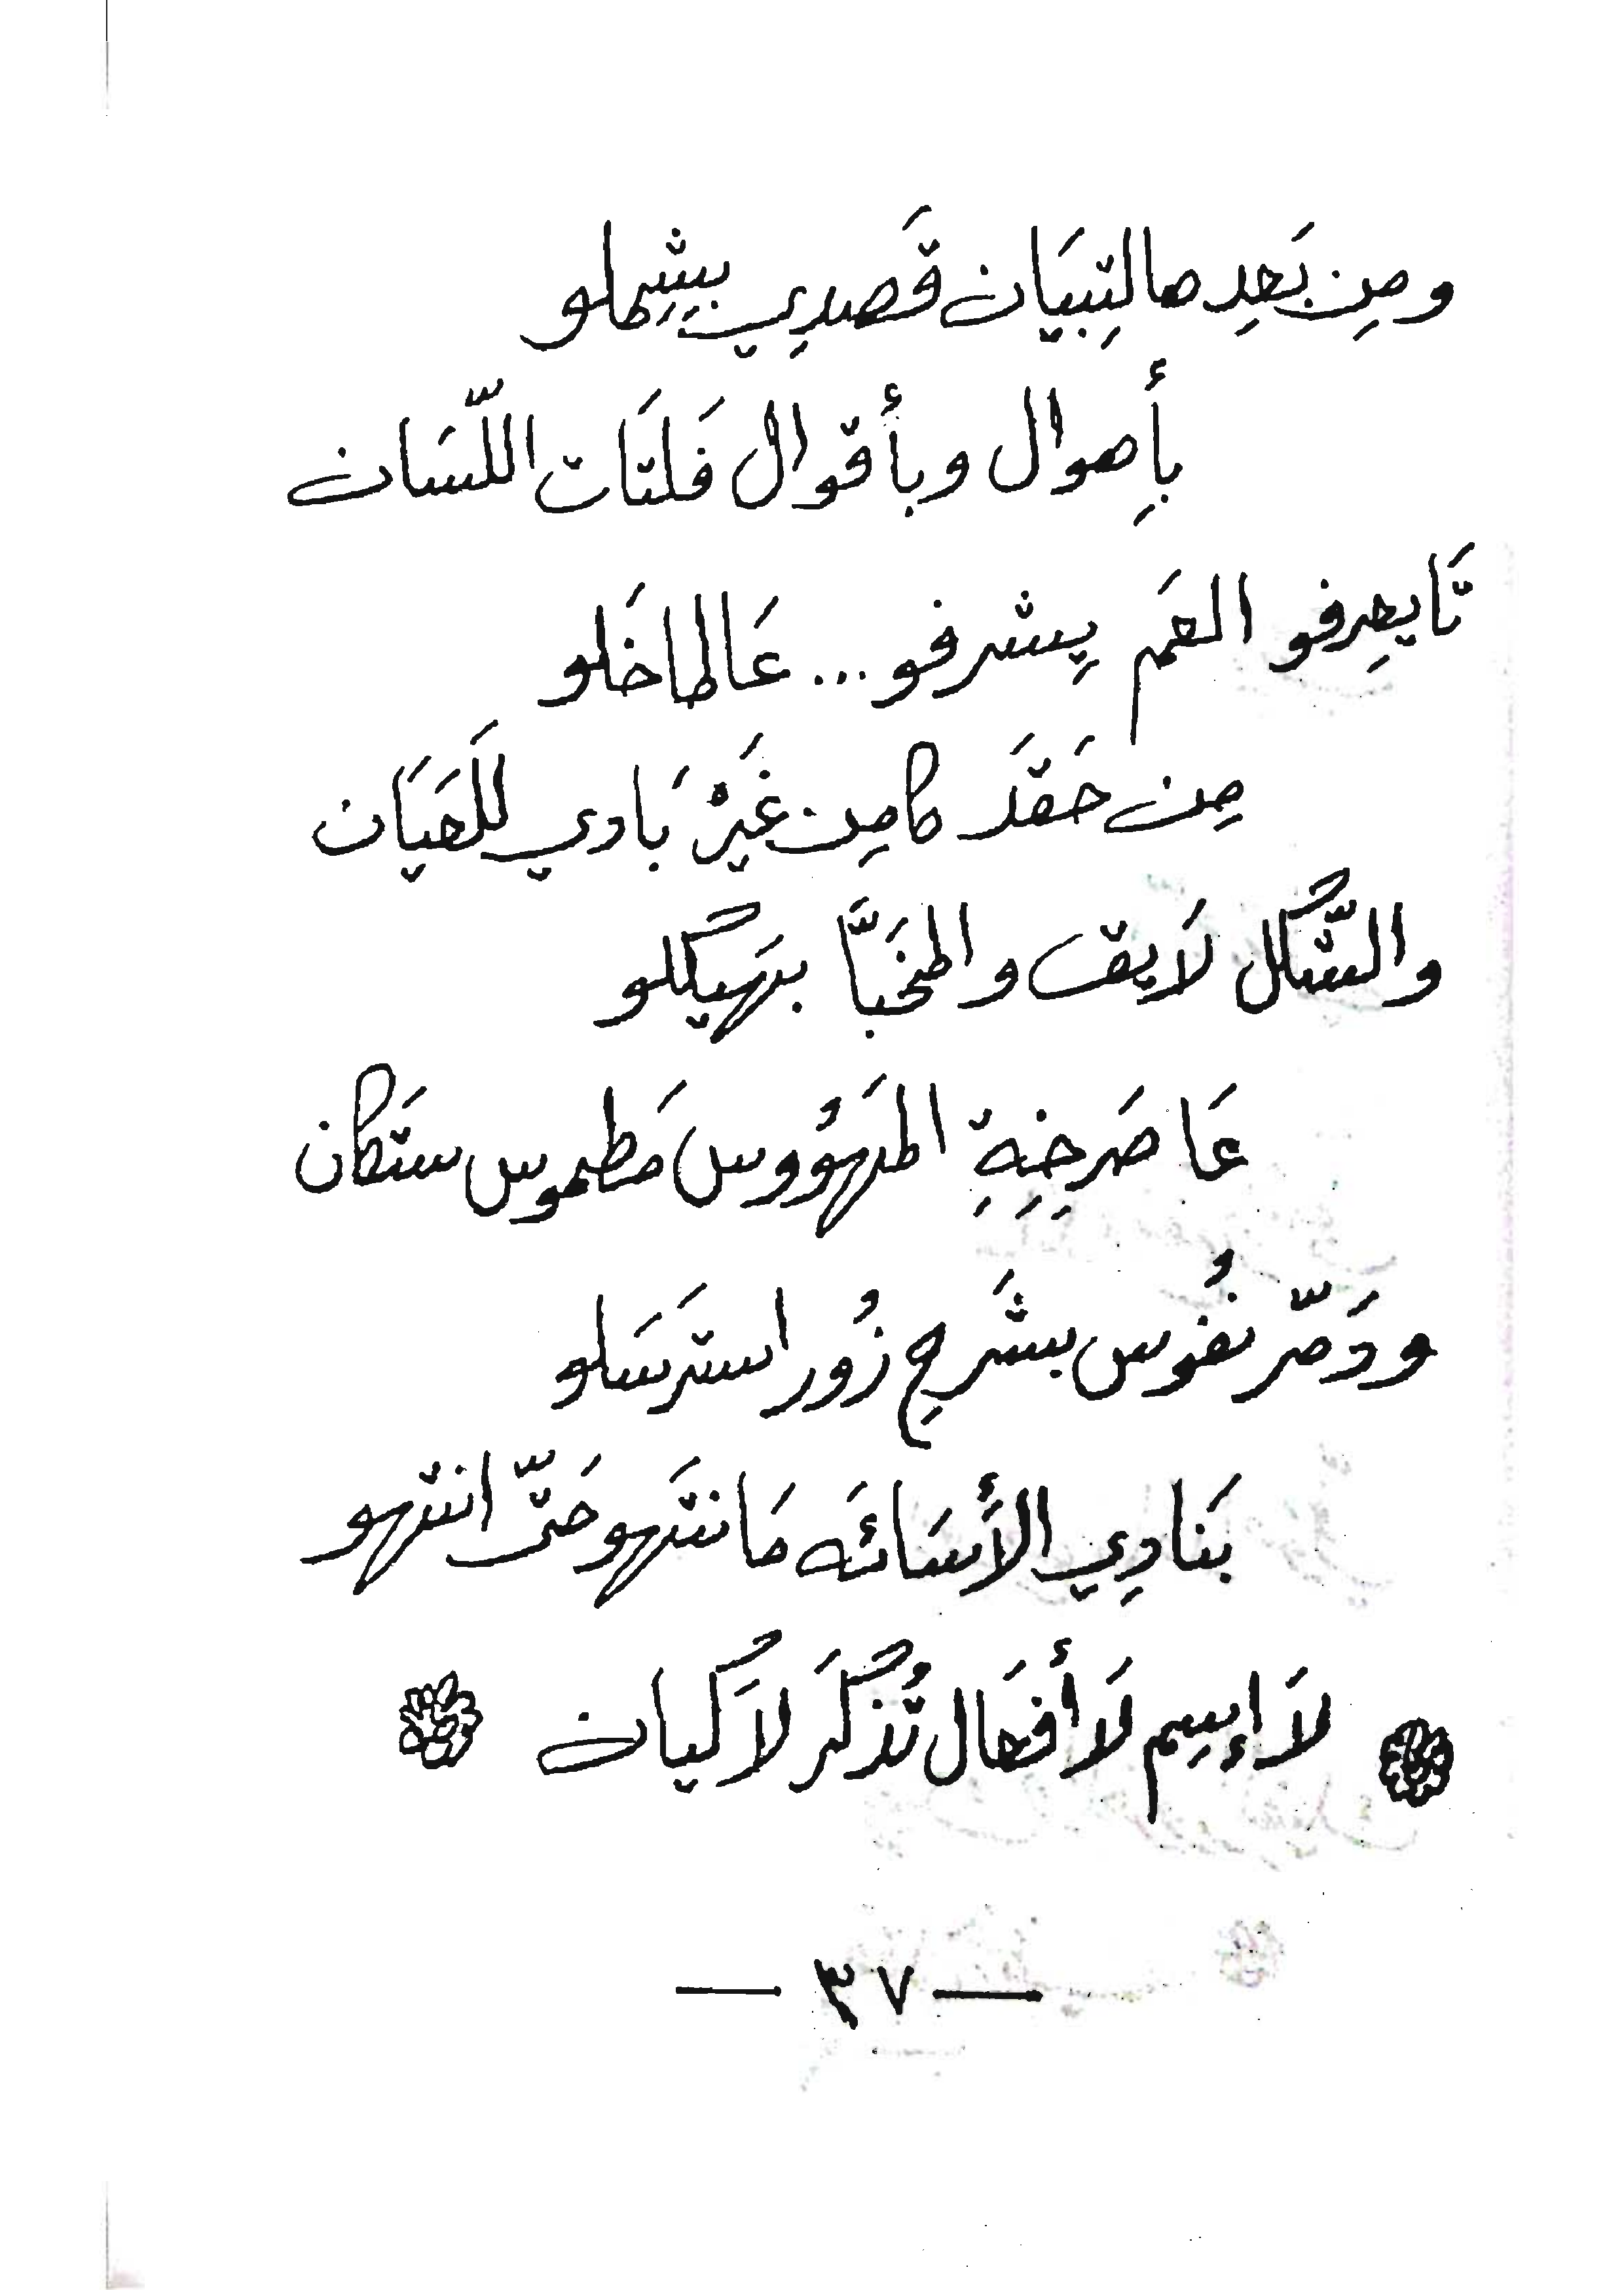 ومِن بَعدِ هالتِبيَان قَصدِي بيشِملو
بأِهوال وبأقوال فَلتَات اللّسَان
تَا يعِرفو العَم يِشرفو... عَالما خَلو
مِن حَقدَ كامِن غَيرْ بَادي للعَيَان
والشَّكل لَايق والمخَبَّا بهَيكلو
عَا صَرخِةِ المَهوُوس مَطموس ستَكان
ودَمّر نفُوس بشَرحِ زُور استَرسَلو
بَنادِي الأسَائَه مَا نتَهو حَتّى انتهو
لَا إسِم لَا أفعَال تُذكَر لَا كيان
— ٣٧ —